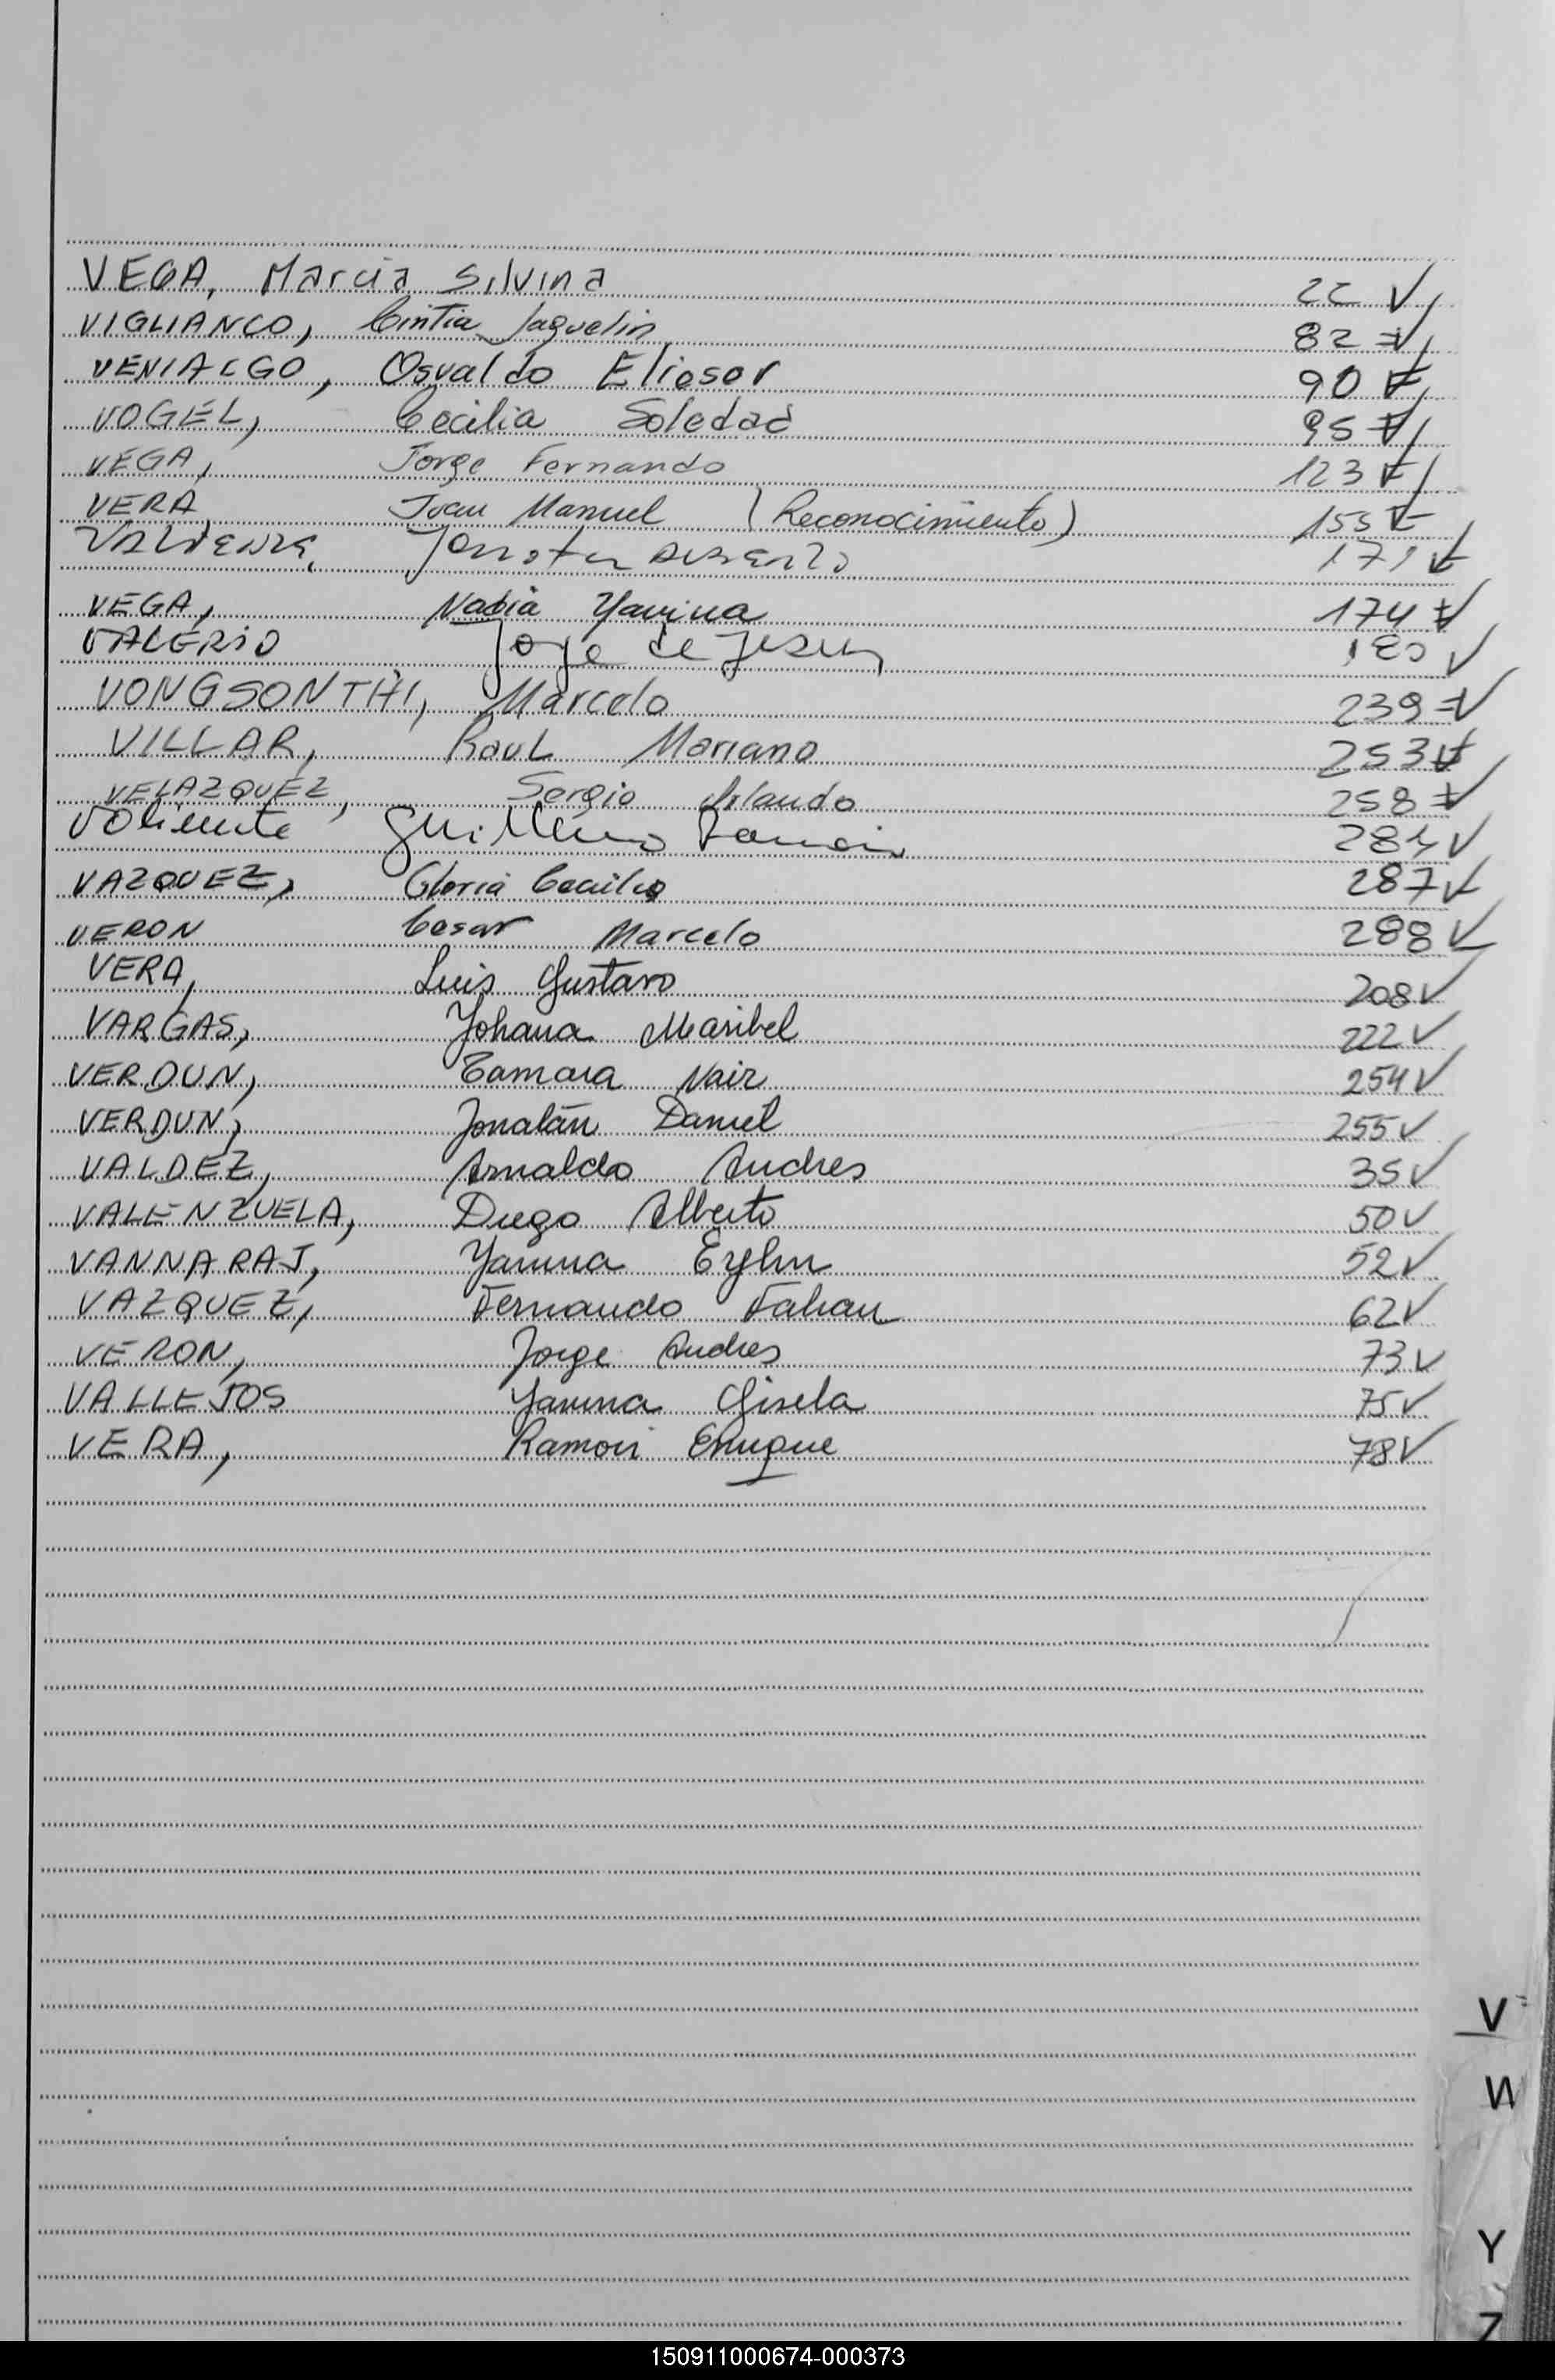 VEGA, Marcia Silvina 22 ✓
VIGLIANCO, Cintia Jaquelin 82 ✓
VENIALGO, Osvaldo Elioser 90 ✓
VOGEL, Cecilia Soledad 95 ✓
VEGA, Jorge Fernando 123 ✓
VERA Juan Manuel (Reconocimiento) 155 ✓
171 ✓
VEGA, Nadia Yanina 174 ✓
VALERIO Jorge de Jesus ✓
VONGSONTHI, Marcelo 239 ✓
VILLAR, Raul Mariano 253 ✓
VELAZQUEZ, Sergio Orlando 258 ✓
Valiente Guillermo Ramon ✓
VAZQUEZ, Gloria Cecilia 287 ✓
VERON Cesar Marcelo 288 ✓
VERA, Luis Gustavo 208 ✓
VARGAS, Yohana Maribel 222 ✓
VERDUN, Tamara Nair 254 ✓
VERDUN, Jonatán Daniel 255 ✓
VALDEZ, Arnaldo Andres 35 ✓
VALENZUELA, Diego Alberto 50 ✓
VANNARAJ, Yanina 52 ✓
VAZQUEZ, Fernando Fabian 62 ✓
VERON, Jorge Andres 73 ✓
VALLEJOS Yanina Gisela 75 ✓
VERA, Ramon Enrique 78 ✓
V
W
Y
Z
150911000674-000373